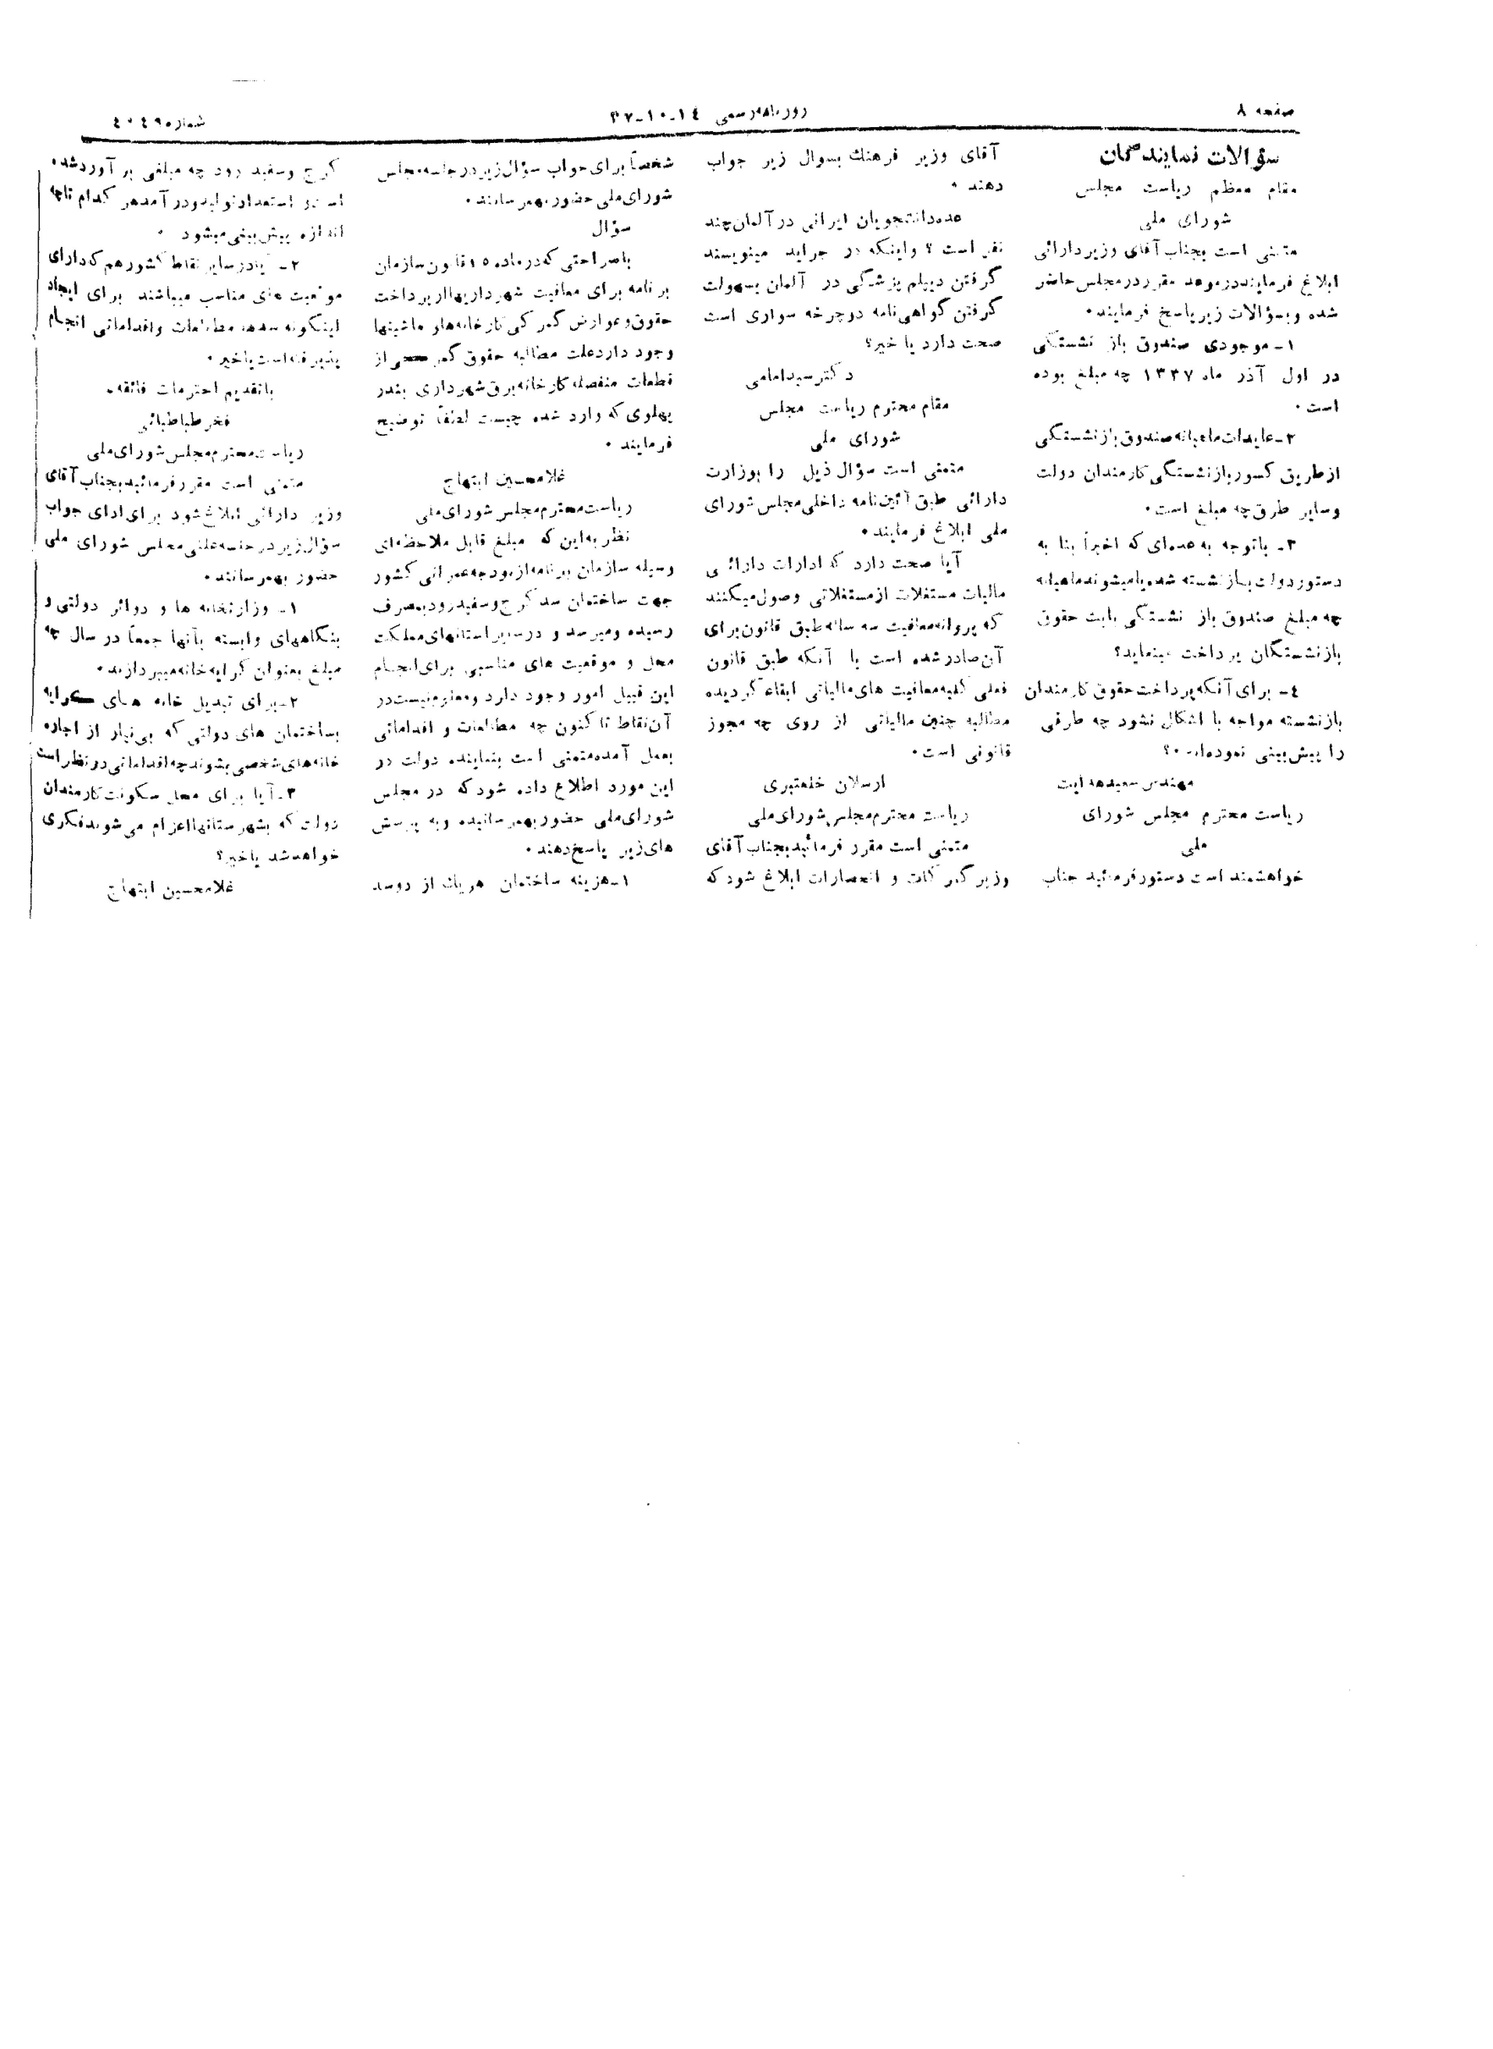 صفحه ۸
روزنامه رسمی ۱۴-۱۰-۳۷
شماره ۴۰۴۹
سؤالات نمایندگان
مقام معظم ریاست مجلس
شورای ملی
متمنی است بجناب آقای وزیر دارائی
ابلاغ فرمایند در موعد مقرر در مجلس حاضر
شده و بسؤالات زیر پاسخ فرمایند.
۱- موجودی صندوق باز نشستگی
در اول آذر ماه ۱۳۳۷ چه مبلغ بوده
است.
۲- عایدات ماهیانه صندوق بازنشستگی
از طریق کسور بازنشستگی کارمندان دولت
وسایر طرق چه مبلغ است.
۳- باتوجه به عده‌ای که اخیراً بنا به
دستور دولت بازنشسته شده یا میشوند ماهیانه
چه مبلغ صندوق باز نشستگی بابت حقوق
بازنشستگان پرداخت مینماید؟
۴- برای آنکه پرداخت حقوق کارمندان
بازنشسته مواجه با اشکال نشود چه طرقی
را پیش‌بینی نموده‌اند؟
مهندس سعید هدایت
ریاست محترم مجلس شورای
ملی
خواهشمند است دستور فرمائید جناب
آقای وزیر فرهنك بسوال زیر جواب
دهند.
عده دانشجویان ایرانی در آلمان چند
نفر است ؟ واینکه در جراید مینویسند
گرفتن دیپلم پزشگی در آلمان بسهولت
گرفتن گواهی‌نامه دوچرخه سواری است
صحت دارد یا خیر؟
دکتر سید امامی
مقام محترم ریاست مجلس
شورای ملی
متمنی است سؤال ذیل را بوزارت
دارائی طبق آئین‌نامه داخلی مجلس شورای
ملی ابلاغ فرمایند.
آیا صحت دارد که ادارات دارائی
مالیات مستغلات از مستغلاتی وصول میکنند
که پروانه معافیت سه ساله طبق قانون برای
آن صادر شده است با آنکه طبق قانون
فعلی کلیه معافیت های مالیاتی ابقاء گردیده
مطالبه چنین مالیاتی از روی چه مجوز
قانونی است.
ارسلان خلعتبری
ریاست محترم مجلس شورای ملی
متمنی است مقرر فرمائید بجناب آقای
وزیر گمرکات و انحصارات ابلاغ شود که
شخصاً برای جواب سؤال زیر در جلسه مجلس
شورای ملی حضور بهمرسانند.
سؤال
باصراحتی که در ماده ۱۵ قانون سازمان
برنامه برای معافیت شهرداریها از پرداخت
حقوق وعوارض گمرکی کارخانه‌ها و ماشینها
وجود دارد علت مطالبه حقوق گمرکی از
قطعات منفصله کارخانه برق شهرداری بندر
پهلوی که وارد شده چیست لطفاً توضیح
فرمایند.
غلامحسین ابتهاج
ریاست محترم مجلس شورای ملی
نظر به این که مبلغ قابل ملاحظه‌ای
وسیله سازمان برنامه از بودجه عمرانی کشور
جهت ساختمان سد کرج و سفیدرود بمصرف
رسیده ومیرسد و در سایر استانهای مملکت
محل و موقعیت های مناسبی برای انجام
این قبیل امور وجود دارد و معلوم نیست در
آن نقاط تا کنون چه مطالعات و اقداماتی
بعمل آمده متمنی است بنماینده دولت در
این مورد اطلاع داده شود که در مجلس
شورای ملی حضور بهمرسانیده وبه پرسش
های زیر پاسخ دهند.
۱- هزینه ساختمان هریك از دوسد
کرج و سفید رود چه مبلغی بر آورد شده
است و استعداد تولید و درآمد هر کدام تاچه
اندازه پیش‌بینی میشود.
۲- آیا در سایر نقاط کشور هم که دارای
موقعیت های مناسب میباشند برای ایجاد
اینگونه سدها مطالعات واقداماتی انجام
پذیرفته است یاخیر.
باتقدیم احترامات فائقه-
فخر طباطبائی
ریاست محترم مجلس شورای ملی
متمنی است مقرر فرمائید بجناب آقای
وزیر دارائی ابلاغ شود برای ادای جواب
سؤال زیر در جلسه علنی مجلس شورای ملی
حضور بهمرسانند.
۱- وزارتخانه ها و دوائر دولتی و
بنگاههای وابسته بآنها جمعاً در سال چه
مبلغ بعنوان کرایه خانه میپردازند.
۲- برای تبدیل خانه های کرایه
بساختمان های دولتی که بی‌نیاز از اجاره
خانه‌های شخصی بشوند چه اقداماتی در نظر است
۳- آیا برای محل سکونت کارمندان
دولت که بشهرستانها اعزام می‌شوند فکری
خواهد شد یا خیر؟
غلامحسین ابتهاج